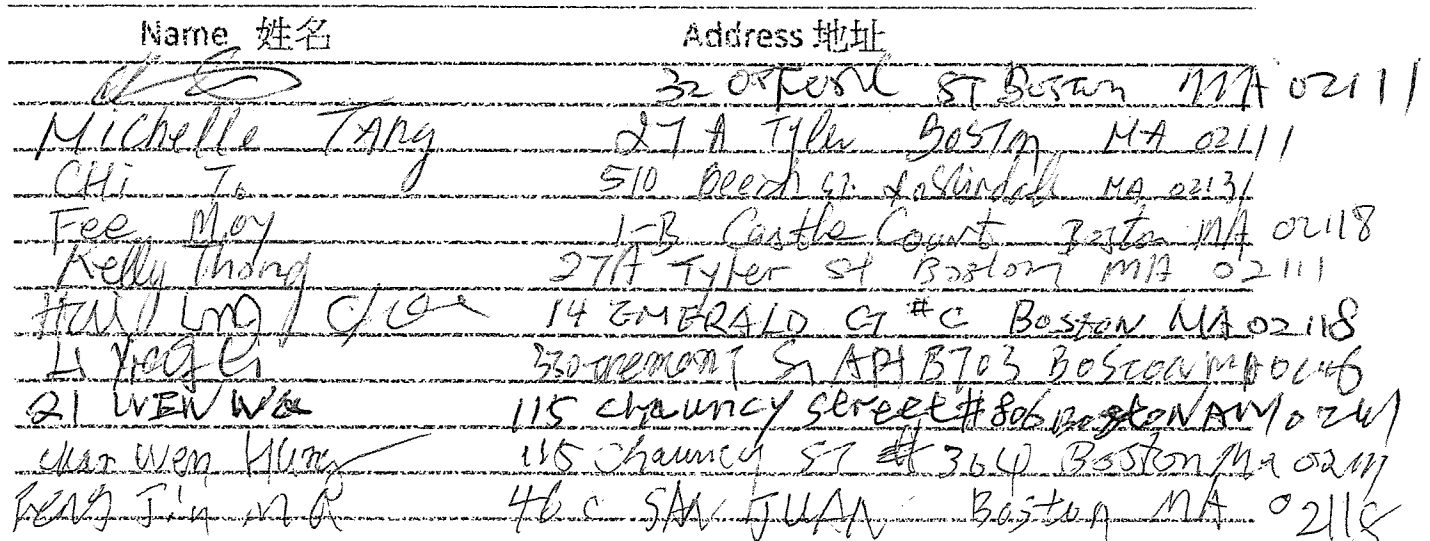 Name 姓名 Address 地址
32 Oxford ST Boston MA 02111
Michelle TAng 27 A Tyler BOSTon MA 02111
CHi To 510 Beech st. Roslindale MA 02131
Fee Moy 1-B Castle Court Boston MA 02118
Kelly Thong 27A Tyler st Boston MA 02111
Hai Ling 14 EMERALD CT #C BOSTON MA 02118
Li 330 Tremont St APt B703 BOSTON MA
21 WEN 115 chauncy street #806 BostoN AM
Wen Hung 115 Chauncy ST #304 Boston Ma 02111
FENg Jin MA 46 C SAN JUAN Boston MA 02118